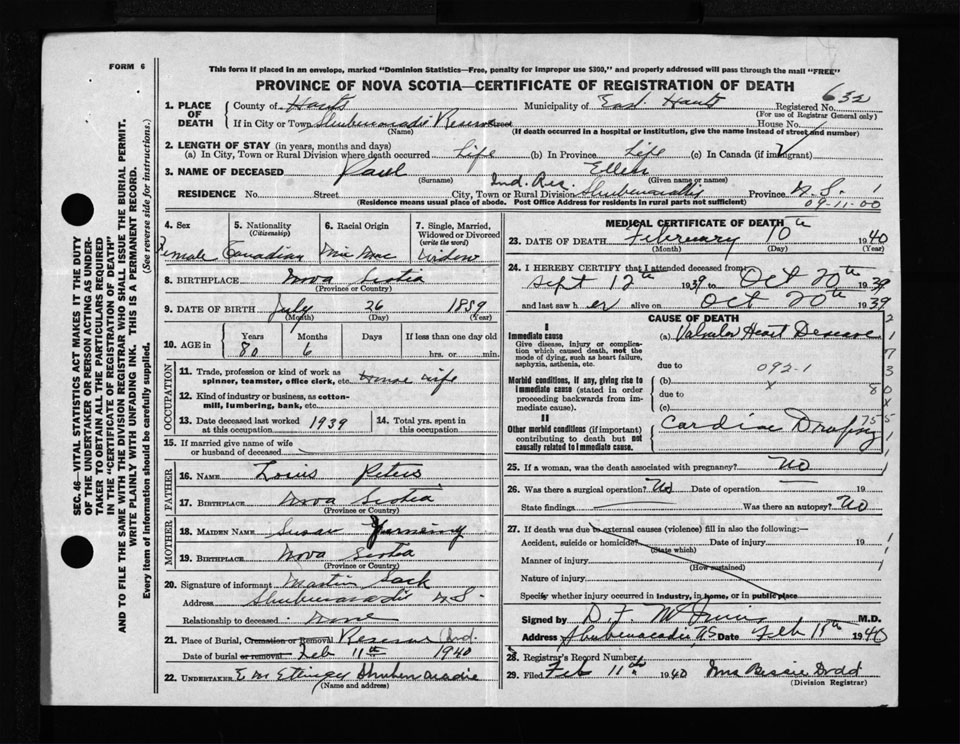 FORM 6
This form if placed in an envelope, marked "Dominion Statistics—Free, penalty for improper use $300," and properly addressed will pass through the mail "FREE"
PROVINCE OF NOVA SCOTIA—CERTIFICATE OF REGISTRATION OF DEATH
632
1. PLACE OF DEATH County of Hants Municipality of East Hants Registered No.
(For use of Registrar General only)
If in City or Town Shubenacadie Reserve Street House No.
(Name) (If death occurred in a hospital or institution, give the name instead of street and number)
2. LENGTH OF STAY (in years, months and days)
(a) In City, Town or Rural Division where death occurred Life (b) In Province Life (c) In Canada (if immigrant)
3. NAME OF DECEASED Paul Ellen
(Surname) (Given name or names)
RESIDENCE No. Street City, Town or Rural Division Ind. Res. Shubenacadie Province N.S.
(Residence means usual place of abode. Post Office Address for residents in rural parts not sufficient)
09-11-00
4. Sex 5. Nationality (Citizenship) 6. Racial Origin 7. Single, Married, Widowed or Divorced (write the word)
Female Canadian Mic Mac Widow
8. BIRTHPLACE Nova Scotia
(Province or Country)
9. DATE OF BIRTH July 26 1859
(Month) (Day) (Year)
10. AGE in Years Months Days If less than one day
80 6 hrs. or min.
OCCUPATION
11. Trade, profession or kind of work as spinner, teamster, office clerk, etc. House wife
12. Kind of industry or business, as cotton-mill, lumbering, bank, etc.
13. Date deceased last worked at this occupation 1939 14. Total yrs. spent in this occupation
15. If married give name of wife or husband of deceased
FATHER
16. NAME Louis Peters
17. BIRTHPLACE Nova Scotia
(Province or Country)
MOTHER
18. MAIDEN NAME Susan
19. BIRTHPLACE Nova Scotia
(Province or Country)
20. Signature of informant Martin Sack
Address Shubenacadie N.S.
Relationship to deceased None
21. Place of Burial, Cremation or Removal Reserve Ind.
Date of burial or removal Feb 11th 1940
22. UNDERTAKER E M Ettinger Shubenacadie
(Name and address)
MEDICAL CERTIFICATE OF DEATH
23. DATE OF DEATH February 10th 1940
(Month) (Day) (Year)
24. I HEREBY CERTIFY that I attended deceased from
Sept 12th 1939 to Oct 20th 1939
and last saw her alive on Oct 20th 1939
CAUSE OF DEATH
I
Immediate cause (a) Valvular Heart Desease
Give disease, injury or complication which caused death, not the mode of dying, such as heart failure, asphyxia, asthenia, etc.
due to 092-1
Morbid conditions, if any, giving rise to immediate cause (stated in order proceeding backwards from immediate cause).
(b) x
due to
(c)
II
Other morbid conditions (if important) contributing to death but not causally related to immediate cause.
Cardiac Dropsy
25. If a woman, was the death associated with pregnancy? No
26. Was there a surgical operation? No Date of operation 19
State findings Was there an autopsy? No
27. If death was due to external causes (violence) fill in also the following:—
Accident, suicide or homicide? Date of injury 19
(State which)
Manner of injury
(How sustained)
Nature of injury
Specify whether injury occurred in industry, in home, or in public place
Signed by M.D.
Address Shubenacadie NS Date Feb 11th 1940
28. Registrar's Record Number
29. Filed Feb 11th 1940 Mrs Bessie Dodd
(Division Registrar)
SEC. 46—VITAL STATISTICS ACT MAKES IT THE DUTY
OF THE UNDERTAKER OR PERSON ACTING AS UNDERTAKER TO OBTAIN ALL THE PARTICULARS REQUIRED
IN THE "CERTIFICATE OF REGISTRATION OF DEATH"
AND TO FILE THE SAME WITH THE DIVISION REGISTRAR WHO SHALL ISSUE THE BURIAL PERMIT.
WRITE PLAINLY WITH UNFADING INK. THIS IS A PERMANENT RECORD.
Every item of information should be carefully supplied. (See reverse side for instructions.)